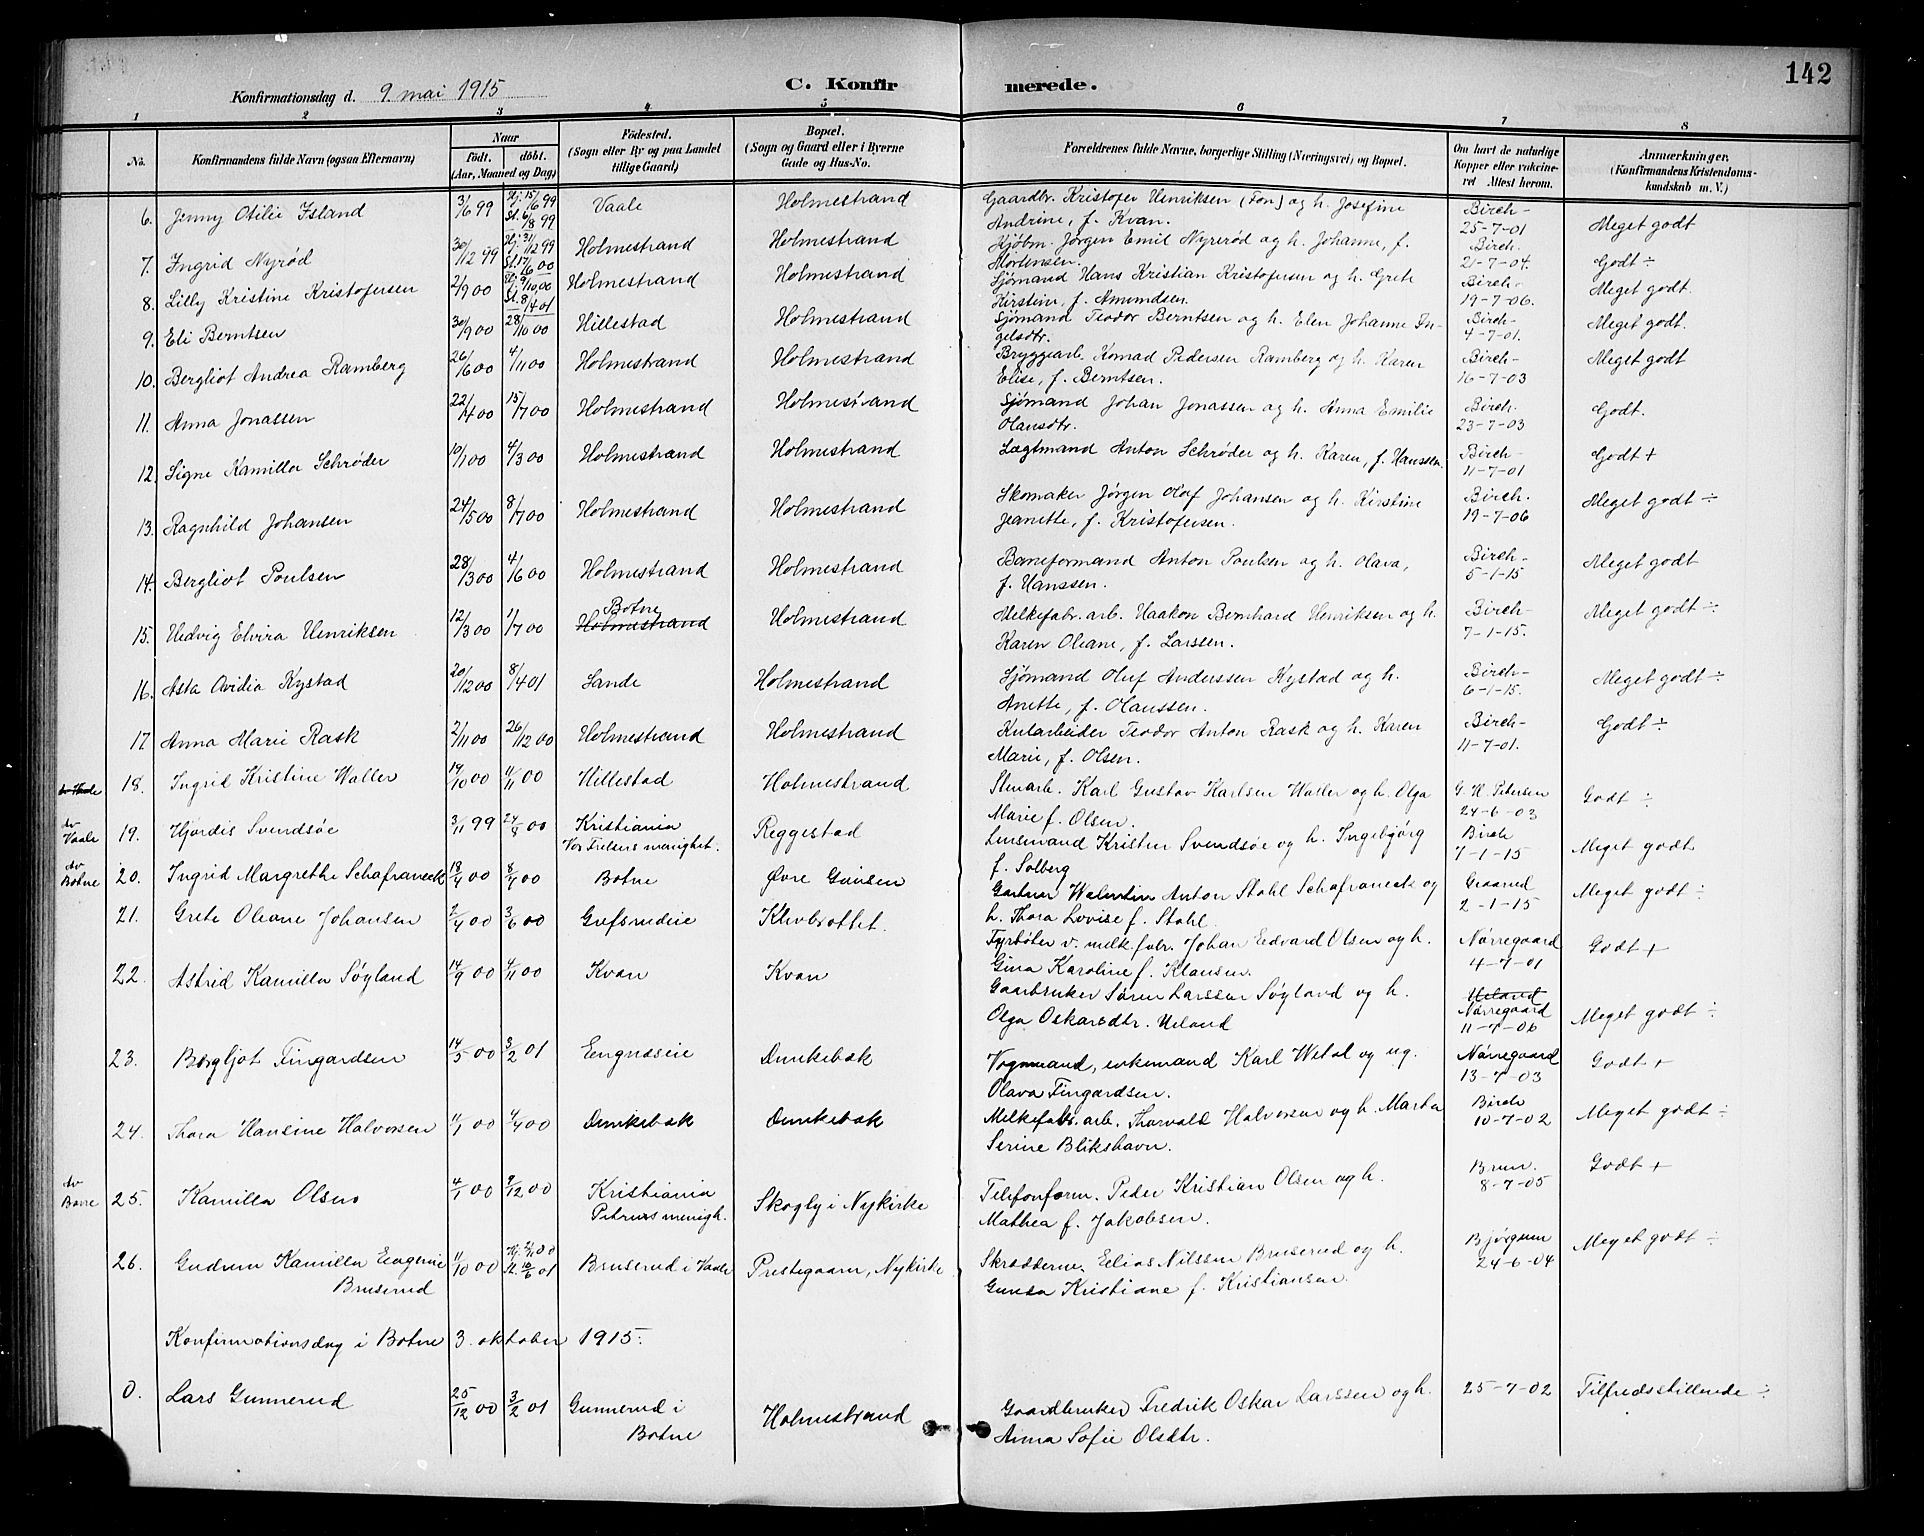 142
Konfirmationsdag d. 9 mai 1915 C. Konfirmerede.
1 2 3 4 5 6 7 8
No. Konfirmandens fulde Navn (ogsaa Efternavn) Naar født. døbt. (Aar, Maaned og Dag) Fødested. (Sogn eller By og paa Landet tillige Gaard) Bopæl. (Sogn og Gaard eller i Byerne Gade og Hus-No. Forældrenes fulde Navne, borgerlige Stilling (Næringsvei) og Bopæl. Om havt de naturlige Kopper eller vakcineret Attest herom. Anmærkninger. (Konfirmandens Kristendomskundskab m. V.)
6. Jenny Otilie Island 3/6 99 Hj. 15/6 99 St. 6/8 99 Vaale Holmestrand Gaardbr. Kristofer Henriksen (Fon) og h. Josefine Andrine, f. Kvan. Birch- 25-7-01 Meget godt
7. Ingrid Nyrød 30/12 99 Hj. 31/12 99 St. 17/6 00 Holmestrand Holmestrand Kjøbm. Jørgen Emil Nyrerød og h. Johanne, f. Mortensen. Birch. 21-7-04. Godt ÷
8. Lilly Kristine Kristofersen 2/9 00 Hj. 9/10 00 St. 8/4 01 Holmestrand Holmestrand Sjømand Hans Kristian Kristofersen og h. Grete Kirstine, f. Amundsen. Birch- 19-7-06. Meget godt.
9. Eli Berntsen 30/9 00 28/10 00 Hillestad Holmestrand Sjømand Teodor Berntsen og h. Elen Johanne Ingelsdtr. Birch- 4-7-01. Meget godt.
10. Bergliot Andrea Ramberg 26/6 00 4/11 00 Holmestrand Holmestrand Bryggearb. Konrad Pedersen Ramberg og h. Karen Elise, f. Berntsen. Birch- 16-7-03 Meget godt
11. Anna Jonassen 22/4 00 15/7 00 Holmestrand Holmestrand Sjømand Johan Jonassen og h. Anna Emilie Olausdtr. Birch. 23-7-03 Godt.
12. Signe Kamilla Schrøder 10/1 00 4/3 00 Holmestrand Holmestrand Lægtmand Anton Schrøder og h. Karen, f. Hanssen. Birch- 11-7-01 Godt +
13. Ragnhild Johansen 24/5 00 8/7 00 Holmestrand Holmestrand Skomaker Jørgen Olaf Johansen og h. Kirstine Jeanette, f. Kristofersen. Birch. 19-7-06 Meget godt ÷
14. Bergliot Poulsen 28/3 00 4/6 00 Holmestrand Holmestrand Baneformand Anton Poulsen og h. Olava, f. Hanssen. Birch- 5-1-15 Meget godt
15. Hedvig Elvira Henriksen 12/3 00 1/7 00 Botne Holmestrand Holmestrand Melkefabr. arb. Haakon Bernhard Henriksen og h. Karen Oleane, f. Larssen. Birch- 7-1-15. Meget godt ÷
16. Asta Ovidia Kystad 20/12 00 8/4 01 Sande Holmestrand Sjømand Oluf Anderssen Kystad og h. Anette, f. Olaussen. Birch- 6-1-15. Meget godt ÷
17 Anna Marie Rask 2/11 00 26/12 00 Holmestrand Holmestrand Kularbeider Teodor Anton Rask og h. Karen Marie, f. Olsen. Birch- 11-7-01. Godt ÷
18. Ingrid Kristine Waller 14/10 00 4/11 00 Hillestad Holmestrand Stenarb. Karl Gustav Karlsen Waller og h. Olga Marie f. Olsen. G. H. Petersen 24-6-03 Godt ÷
av Vaale 19. Hjørdis Svendsøe 3/11 99 24/8 00 Kristiania Vor Frelsers menighet. Reggestad Lensmand Kristen Svendsøe og h. Ingebjørg f. Solberg Birch 7-1-15 Meget godt
av Botne 20. Ingrid Margrethe Schafraneck 18/4 00 8/7 00 Botne Øvre Gausen Gartner Walentin Anton Stahl Schafraneck og h. Thora Lovise f. Stahl. Graarud 2-1-15 Meget godt ÷
21. Grete Oleane Johansen 2/4 00 3/6 00 Grefsrudeie Klevbrottet. Fyrbøter v. melk.fabr. Johan Edvard Olsen og h. Gina Karoline f. Klausen. Nørregaard 4-7-01 Godt +
22. Astrid Kamilla Søyland 14/9 00 4/11 00 Kvan Kvan Gaarbruker Søren Larssen Søyland og h. Olga Oskarsdtr. Ueland Ueland Nørregaard 11-7-06 Meget godt ÷
23. Bergljot Fingardsen 14/5 00 3/2 01 Engnæseie Dunkebæk Vognmand, enkemand Karl Wetal og ug. Olava Fingardsen. Nørregaard 13-7-03 Godt +
24. Thora Hansine Halvorsen 11/1 00 4/4 00 Dunkebæk Dunkebæk Melkefabr. arb. Thorvald Halvorsen og h. Marta Serine Blikshavn. Birch 10-7-02 Meget godt ÷
av Borre 25. Kamilla Olsen 4/1 00 9/12 00 Kristiania Petrus menigh. Skogly i Nykirke Telefonform. Peder Kristian Olsen og h. Mathea f. Jakobsen. Bruun. 8-7-05 Godt +
26. Gudrun Kamilla Eugenie Bruserud 11/10 00 Hj. 2/11 00 St. 16/6 01 Bruserud i Vaale Prestegaarn, Nykirke Skrædderne. Edias Nilssen Bruserud og h. Gunda Kristiane f. Kristiansen. Bjørgum 24-6-04 Meget godt ÷
Konfirmationsdag i Botne 3. oktober 1915.
0. Lars Gunnerud 25/12 00 3/2 01 Gunnerud i Botne Holmestrand Gaardbruker Fredrik Oskar Larssen og h. Anna Sofie Olsdtr. 25-7-02 Tilfredsstillende ÷